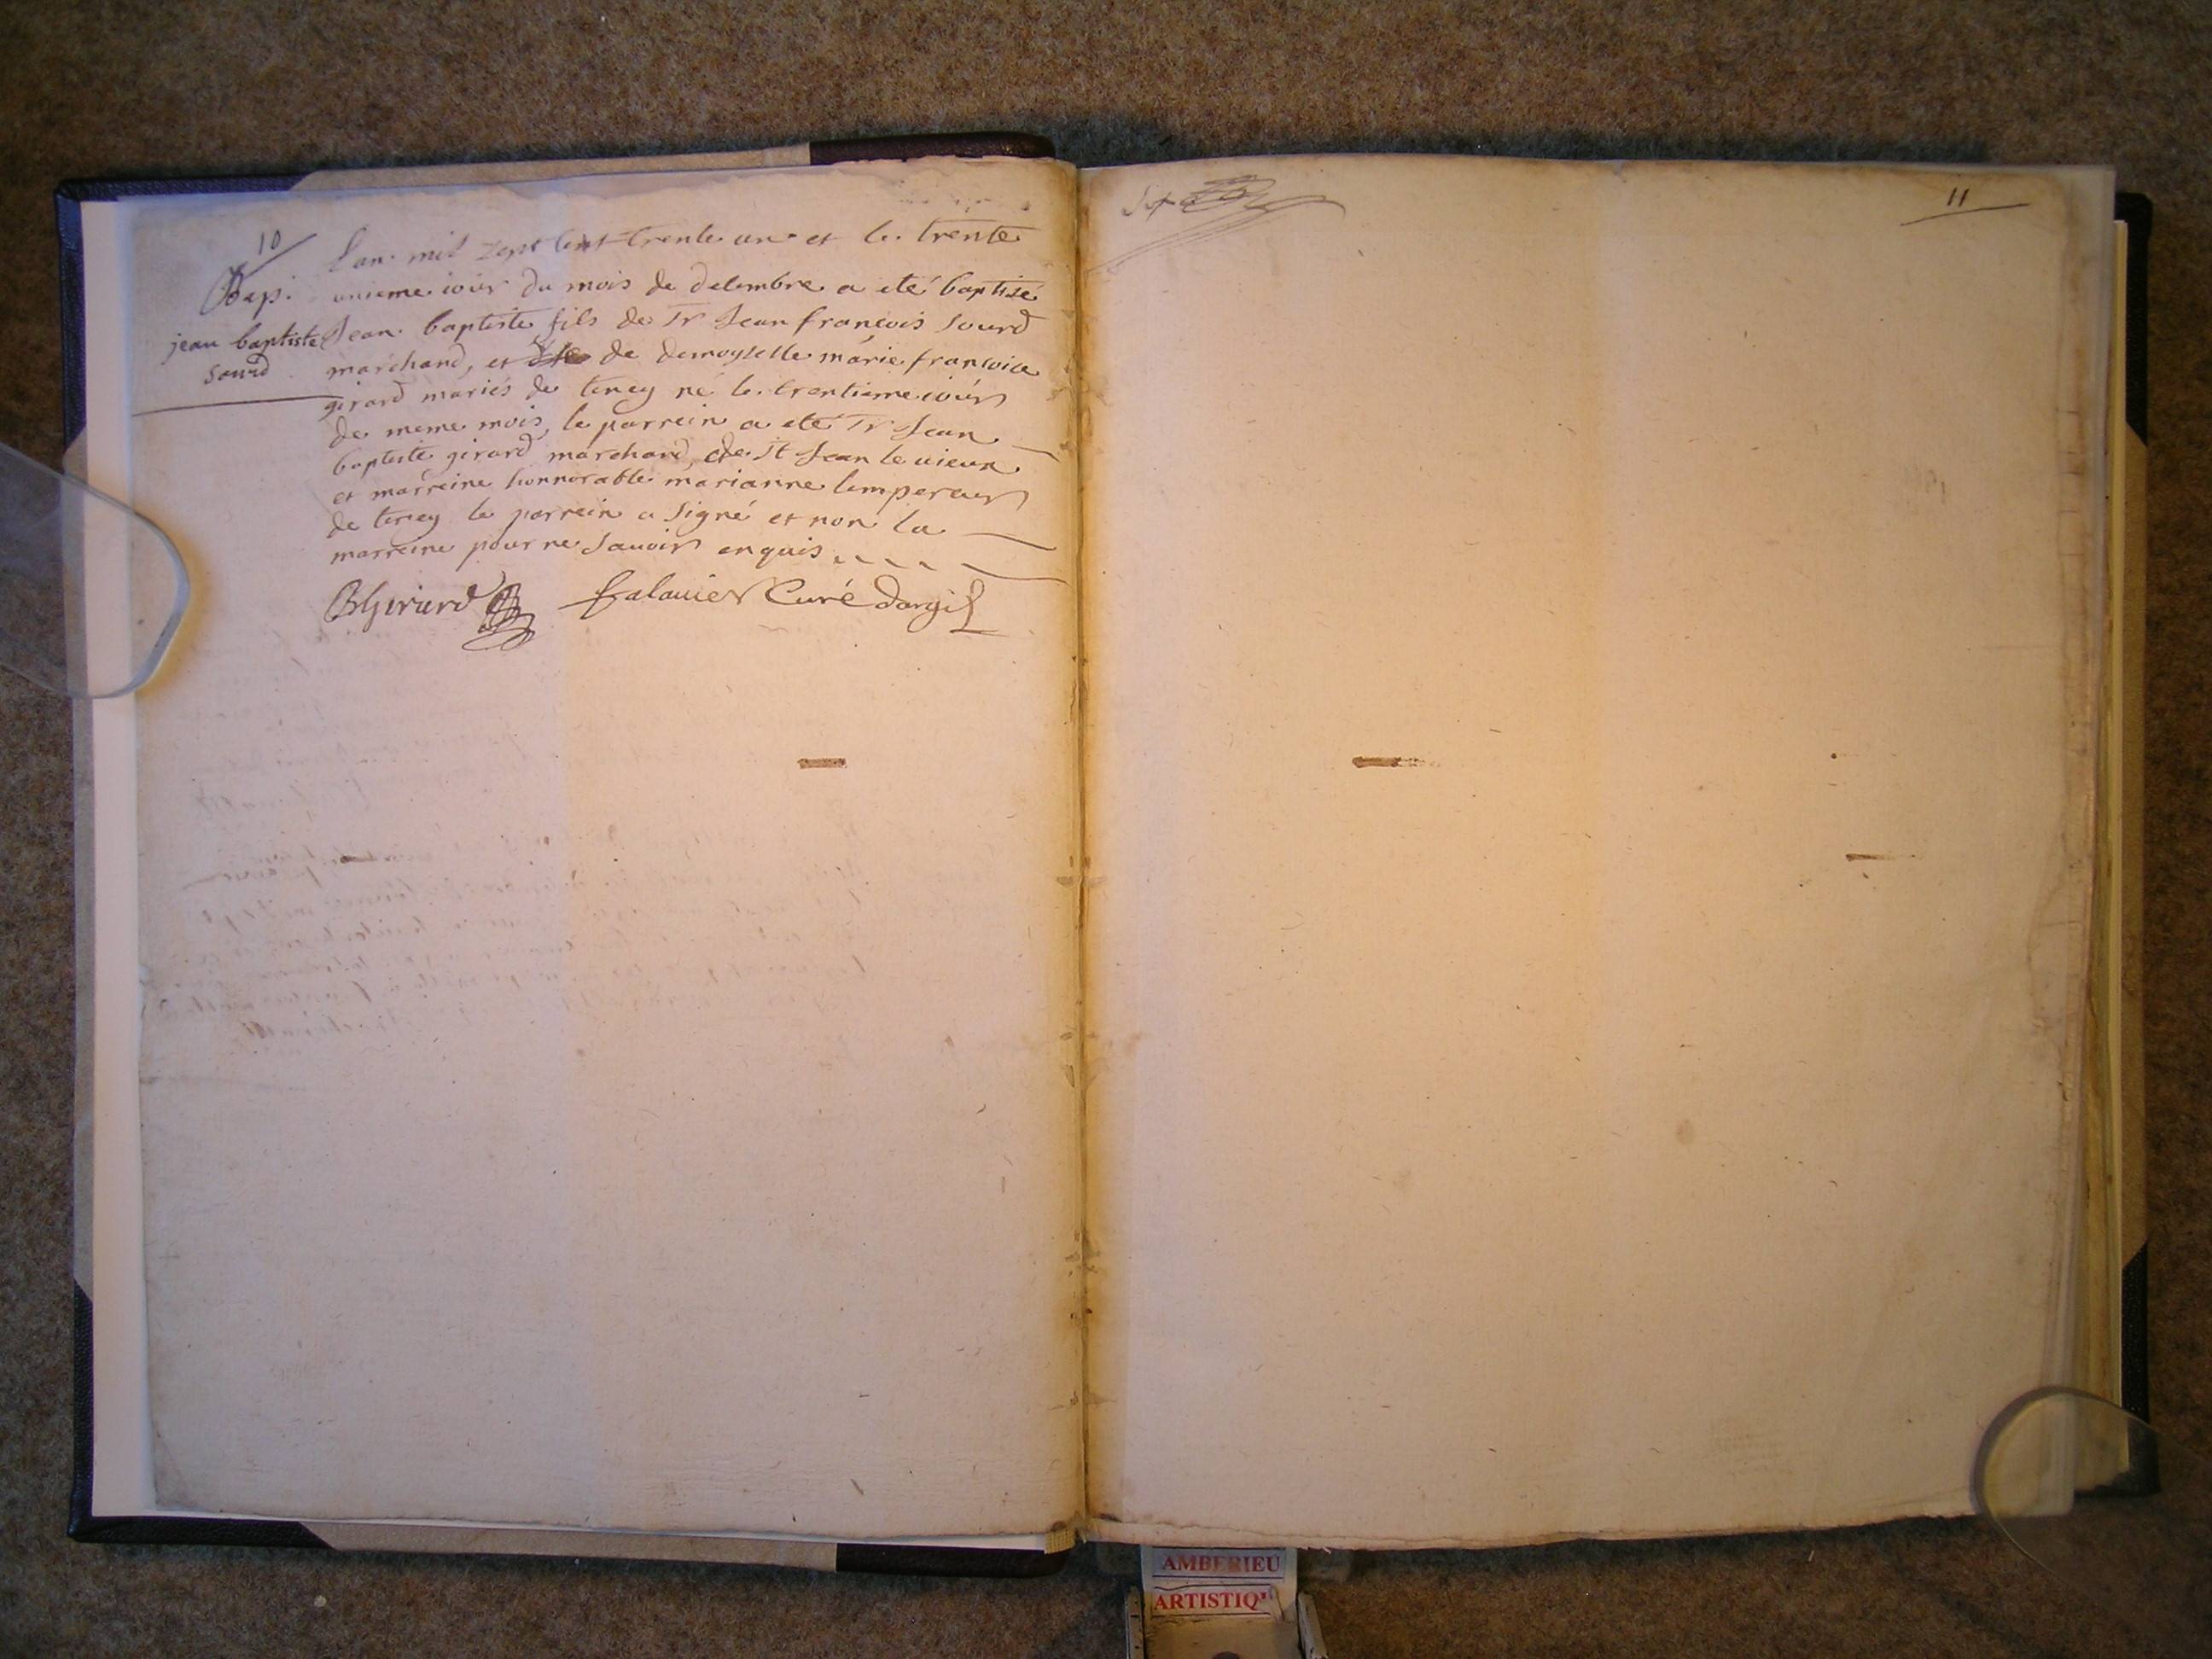 10
Bap.
jean baptiste
Sourd
L'an mil zept cent trente un et le trente
unieme iour du mois de decembre a eté baptisé
Jean baptiste fils de Sr Jean françois Sourd
marchand, et de demoyselle marie francoise
girard mariés de teney né le trentieme iour
de meme mois, le parrein a eté Sr Jean
baptiste girard marchand, de st Jean le uieux
et marreine honnorable marianne lempereur
de teney le parrein a signé et non la
marreine pour ne sauoir enquis
BGirard Galauier Curé dargil
11
AMBERIEU
ARTISTIQU